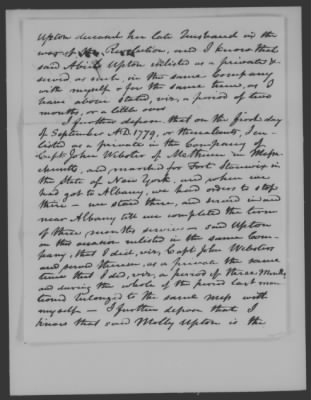 Upton deceased her late Husband in the
war of the Revolution, and I know that
said Abiel Upton enlisted as a private &
served as such, in the same Company
with myself & for the same term, as I
have above stated, viz, a period of two
months, or a little over
I further depose that on the first day
of September A.D. 1779, or thereabouts, I en-
listed as a private in the Company of
Capt. John Webster of Methuen in Massa-
chusetts, and marched for Fort Stanwix in
the State of New York, and when we
had got to Albany, we had orders to stop
there – we staid there, and served in and
near Albany till we completed the term
of three months service – said Upton
on this occasion enlisted in the same Com-
pany, that I did, viz, Capt John Websters
and served therein, as a private the same
time that I did, viz, a period of three Months
and during the whole of the period last men
tioned belonged to the same mess with
myself – I further depose that I
know that said Molly Upton is the